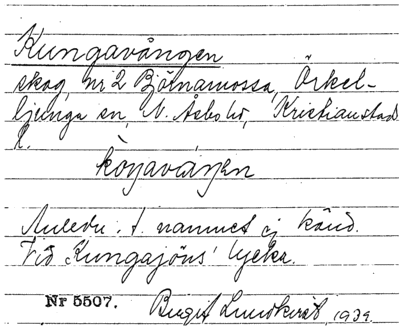 Kungavången
skog, nr 2 Björnamossa, Örkel-
ljunga sn, N. Åsbo hd, Kristianstads
l.
kòŋaváŋen
Anledn. t. namnet ej känd.
Vid Kungajöns' lycka.
Nr 5507. Birgit Lundkvist, 1934.